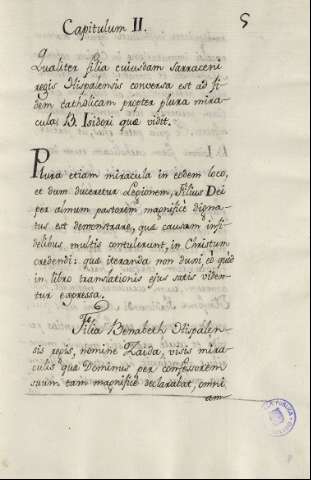 5
Capitulum II.
Qualiter filia cuiusdam Sarraceni
regis Hispalensis conversa est ad fi-
dem catholicam propter plura mira-
cula B. Isidori quæ vidit.
Plura etiam miracula in eodem loco,
et dum duceretur Legionem, Filius Dei
per almum pastorem magnificè digna-
tus est demonstrare, quæ causam infi-
delibus multis contulerunt, in Christum
credendi: quæ iteranda non duxi, eò quòd
in libro translationis ejus satis viden-
tur expressa.
Filia Benabeth Hispalen-
sis regis, nomine Zaida, visis mira-
culis quæ Dominus per confessorem
suum tam magnificè declarabat, omni-
am